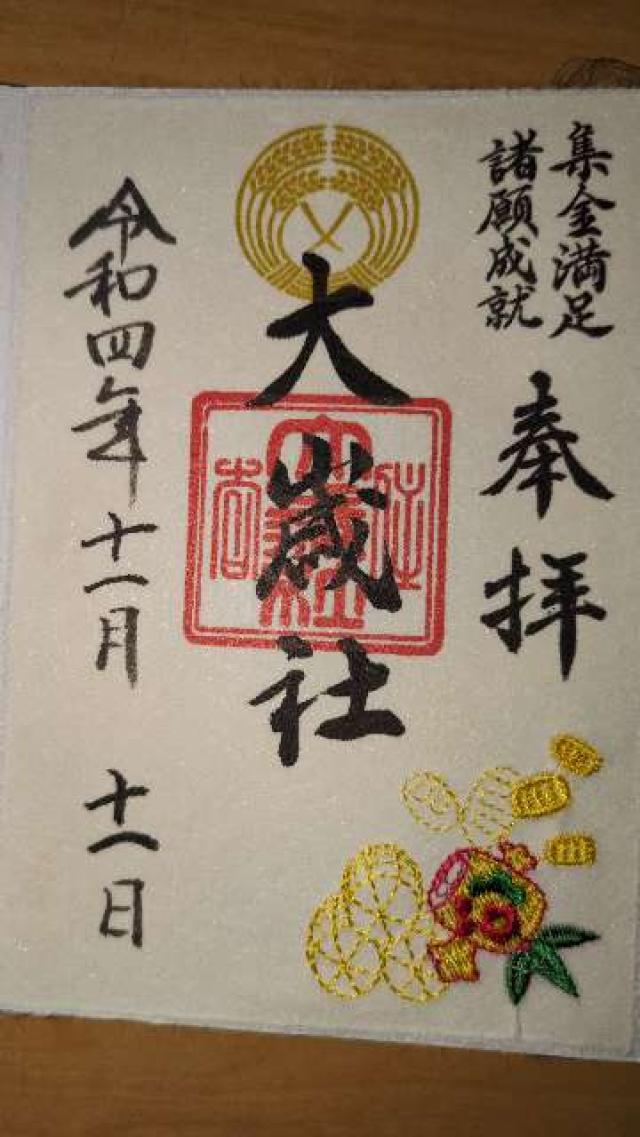 集金満足
諸願成就
奉拝
大歳社
令和四年十一月十一日